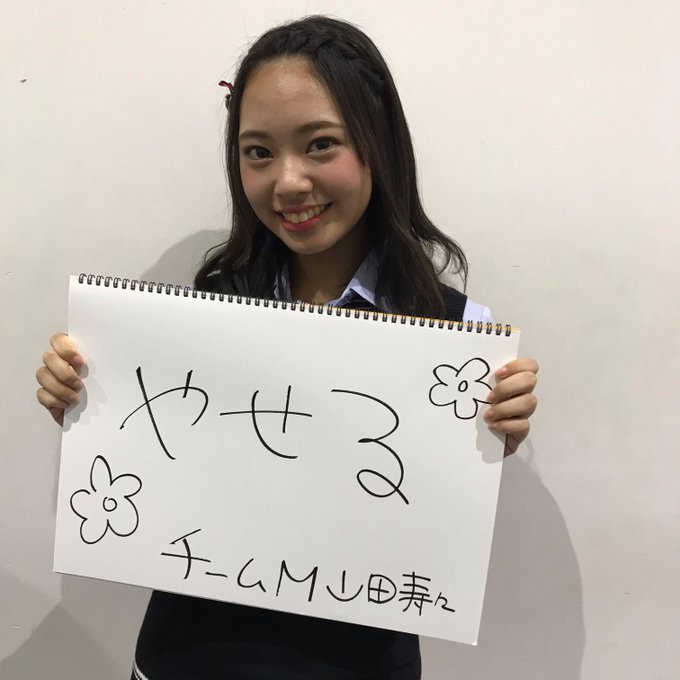 やせる
チームM山田寿々